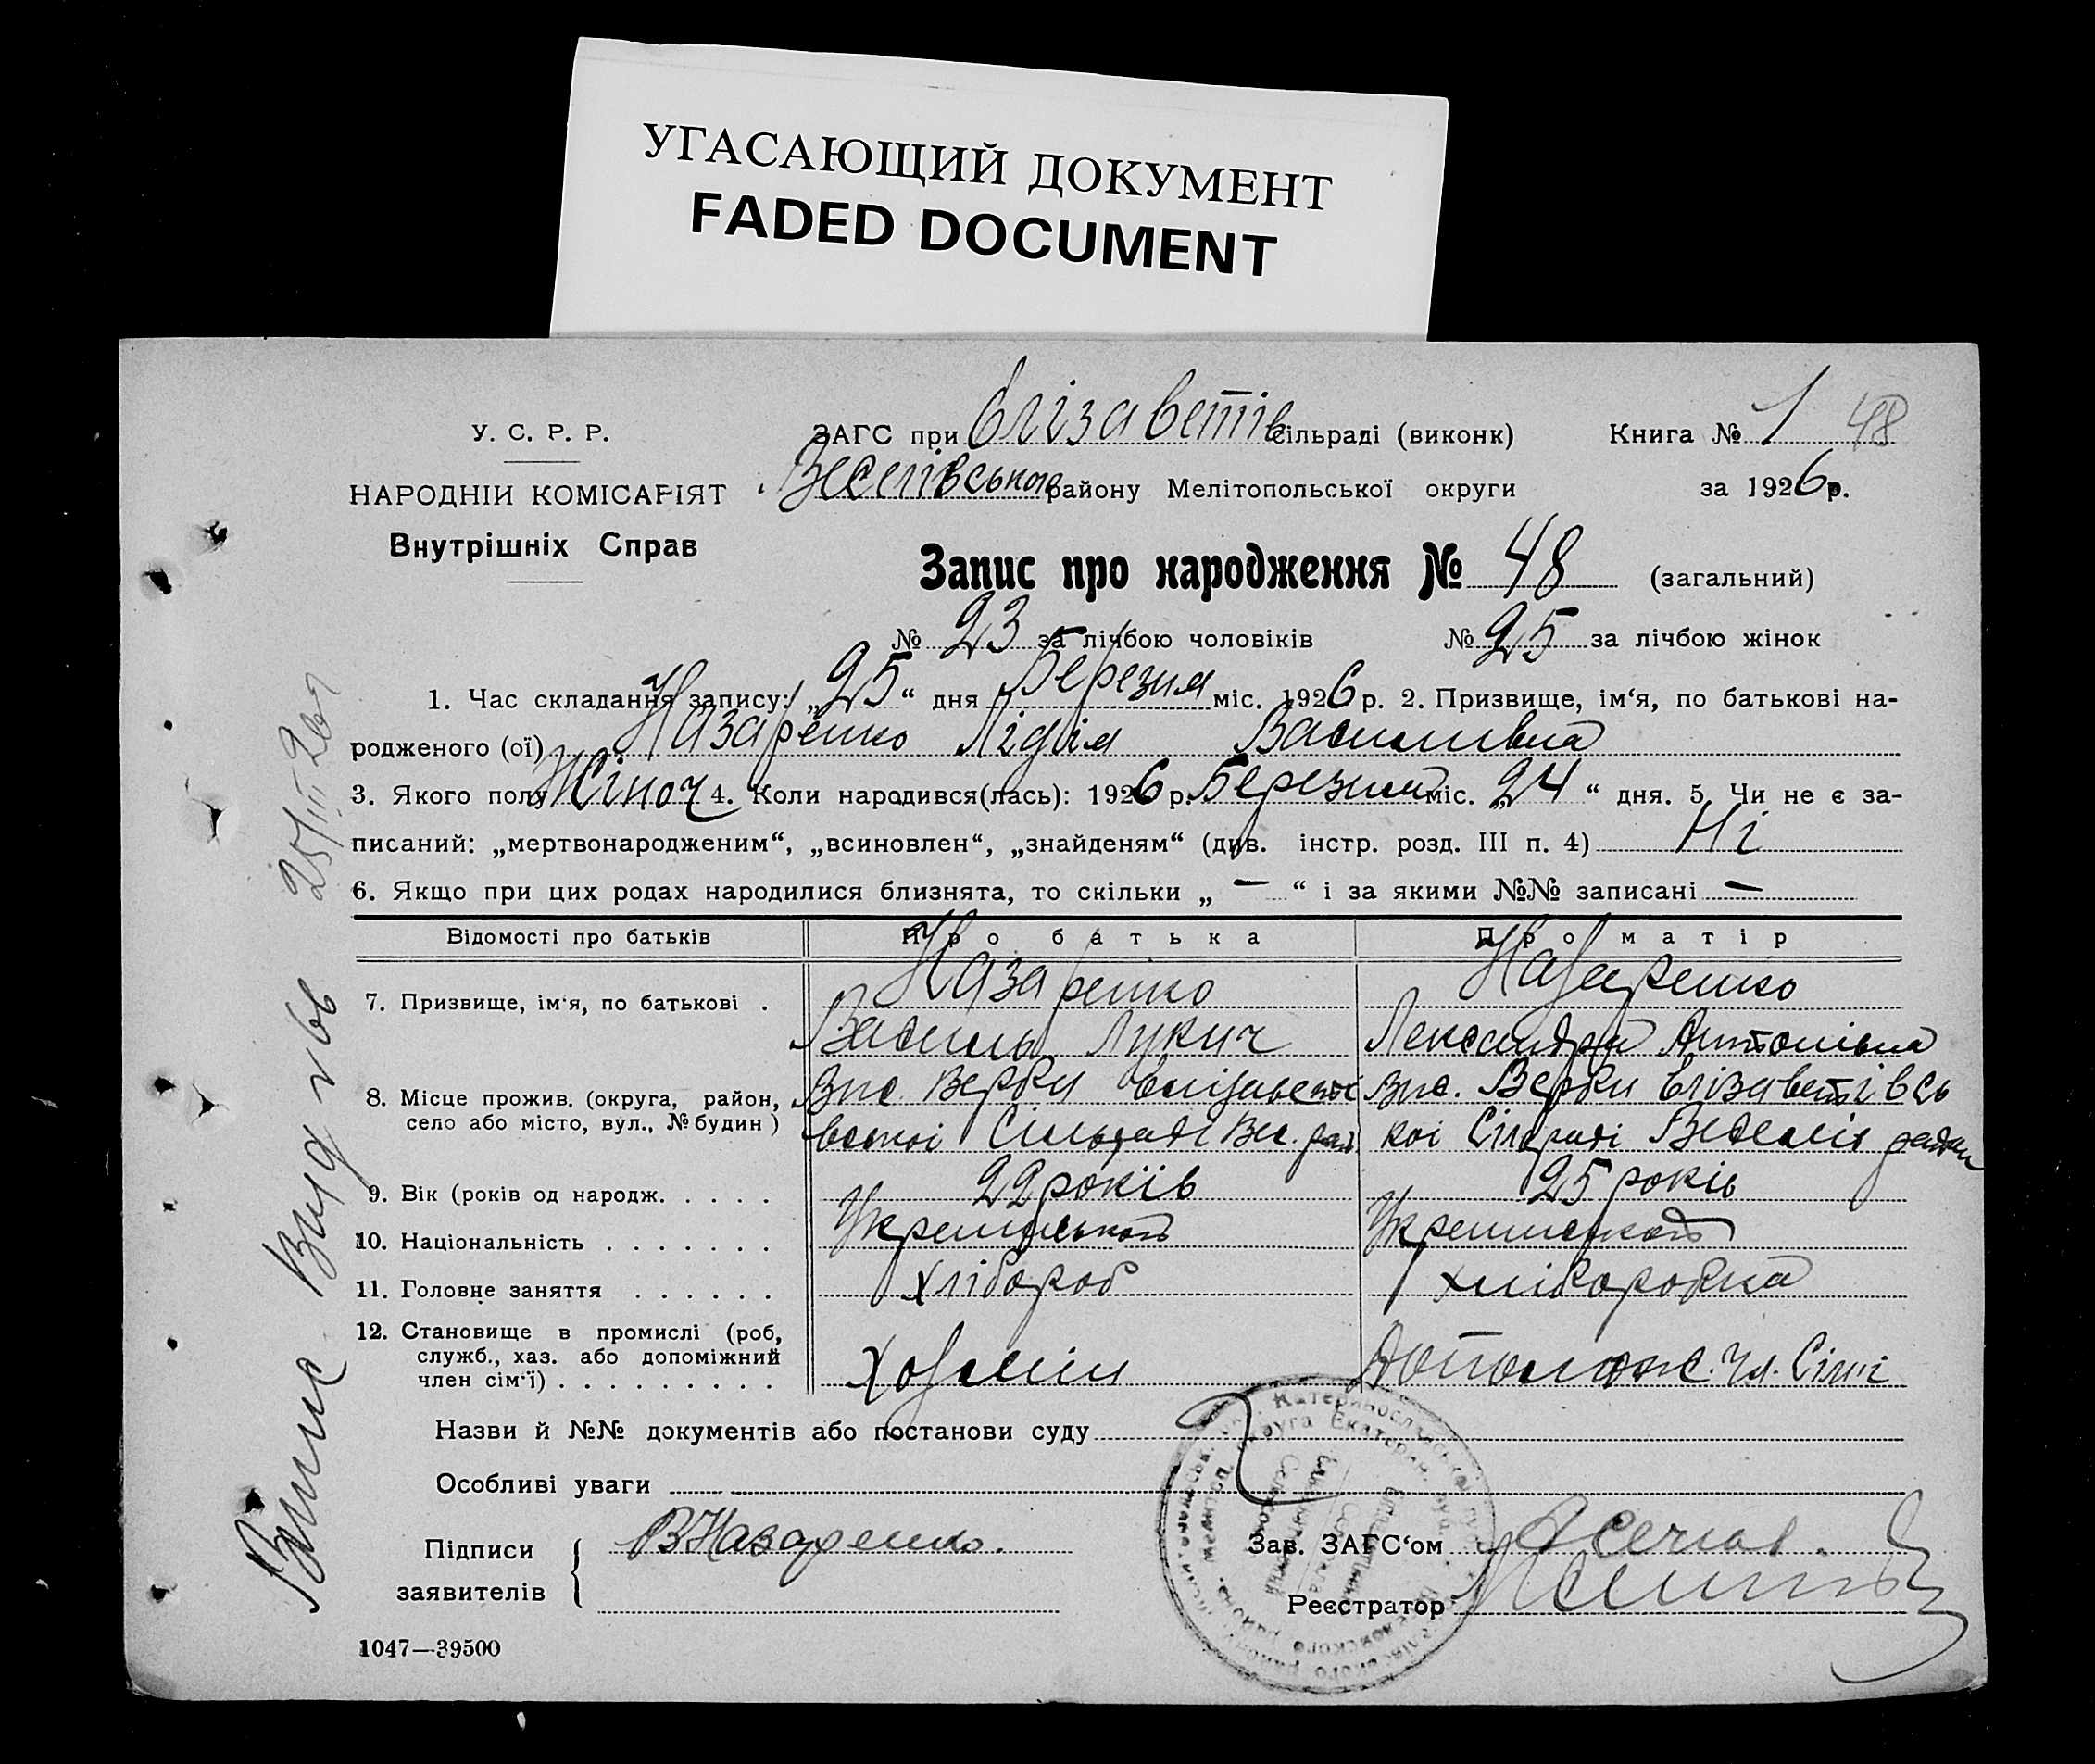 УГАСАЮЩИЙ ДОКУМЕНТ
FADED DOCUMENT
У. С. Р. Р.
НАРОДНІЙ КОМІСАРІЯТ
Внутрішніх Справ
ЗАГС при Єлізаветів сільраді (виконк)
Веселівського району Мелітопольської округи
Книга № 1 48
за 1926 р.
Запис про народження № 48 (загальний)
№ 23 за лічбою чоловіків № 25 за лічбою жінок
1. Час складання запису: „25“ дня Березня міс. 1926 р. 2. Призвище, ім‘я, по батькові на-
родженого (ої) Назаренко Лідія Василівна
3. Якого полу Жіноч 4. Коли народився(лась): 1926 р. Березня міс. „24“ дня. 5. Чи не є за-
писаний: „мертвонародженим“, „всиновлен“, „знайденям“ (див. інстр. розд. III п. 4) Ні
6. Якщо при цих родах народилися близнята, то скільки „ — “ і за якими №№ записані —
Відомості про батьків Про батька Про матір
7. Призвище, ім‘я, по батькові . Назаренко Назаренко
Василь Лукич Лександра Антонівна
8. Місце прожив. (округа, район,
село або місто, вул., № будин) Верби Верби Єлізаветівсь
кої Сілради
9. Вік (років од народж. . . . . 22 років 25 років
10. Національність . . . . . . .
11. Головне заняття . . . . . . Хлібороб хліборобка
12. Становище в промислі (роб,
служб., хаз. або допоміжний
член сім‘ї) . . . . . . . . . Хазяїн Допомож. Чл. Сімї
Назви й №№ документів або постанови суду
Особливі уваги
Підписи
заявителів
В Назаренко.
Зав. ЗАГС‘ом
Реєстратор
1047—39500
25/III 26